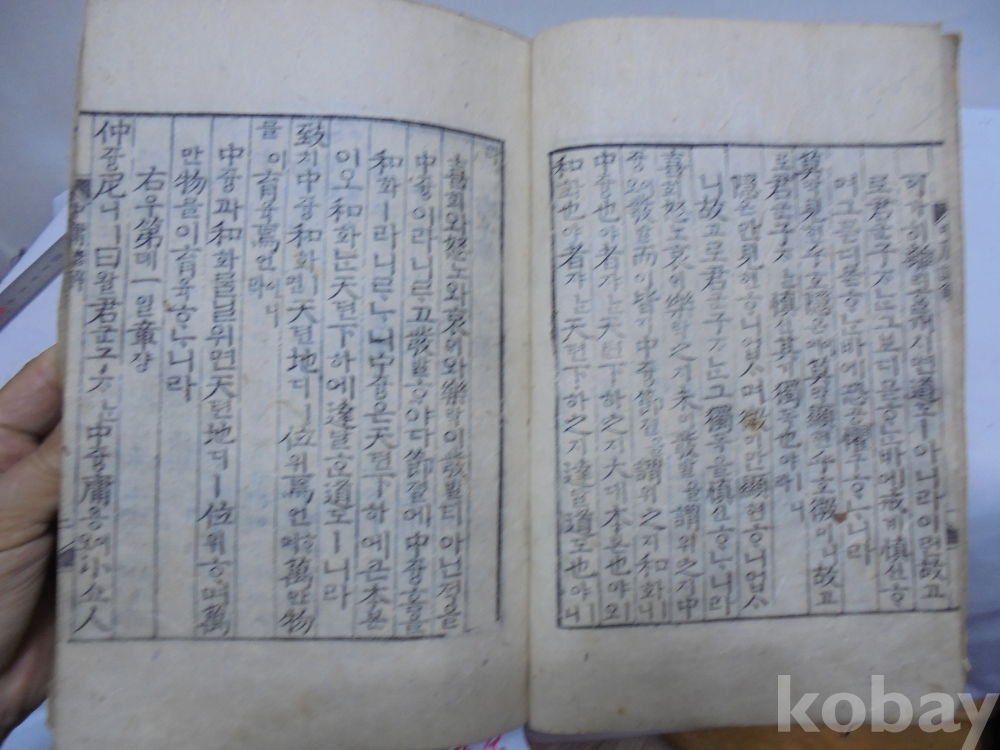 히離리홀거시면道도ㅣ아니라이런故고
로君군子ᄌᆞᄂᆞᆫ그보디몯ᄒᆞᄂᆞᆫ바애戒계愼신ᄒᆞ
며그듣디몯ᄒᆞᄂᆞᆫ바애恐공懼구ᄒᆞᄂᆞ니라
莫막見현乎호隱은이며莫막顯현乎호微미니故고
로君군子ᄌᆞᄂᆞᆫ愼신其기獨독也야ㅣ니라
隱은만見현ᄒᆞ니업스며微미만顯현ᄒᆞ니업스
니故고로君군子ᄌᆞᄂᆞᆫ그獨독을愼신ᄒᆞᄂᆞ니라
喜희怒노哀ᄋᆡ樂락之지未미發발을謂위之지中
듕이오發발而이皆ᄀᆡ中듕節졀을謂위之지和화ㅣ니
中듕也야者쟈ᄂᆞᆫ天텬下하之지大대本본也야ㅣ오
和화也야者쟈ᄂᆞᆫ天텬下하之지達달道도也야ㅣ니
라
喜희와怒노와哀ᄋᆡ와樂락이發발티아닌적을
中듕이라니ᄅᆞ고發발ᄒᆞ야다節졀에中듕홈을
和화ㅣ라니ᄅᆞᄂᆞ니中듕은天텬下하에큰本본
이오和화ᄂᆞᆫ天텬下하에達달ᄒᆞᆫ道도ㅣ니라
致치中듕和화ㅣ면天텬地디ㅣ位위焉언ᄒᆞ며萬만物
믈이育육焉언이니라
中듕과和화를닐위면天텬地디ㅣ位위ᄒᆞ며萬
만物믈이育육ᄒᆞᄂᆞ니라
右우第뎨一일章쟝
仲듕尼니ㅣ曰왈君군子ᄌᆞᄂᆞᆫ中듕庸용이오小쇼人
kobay